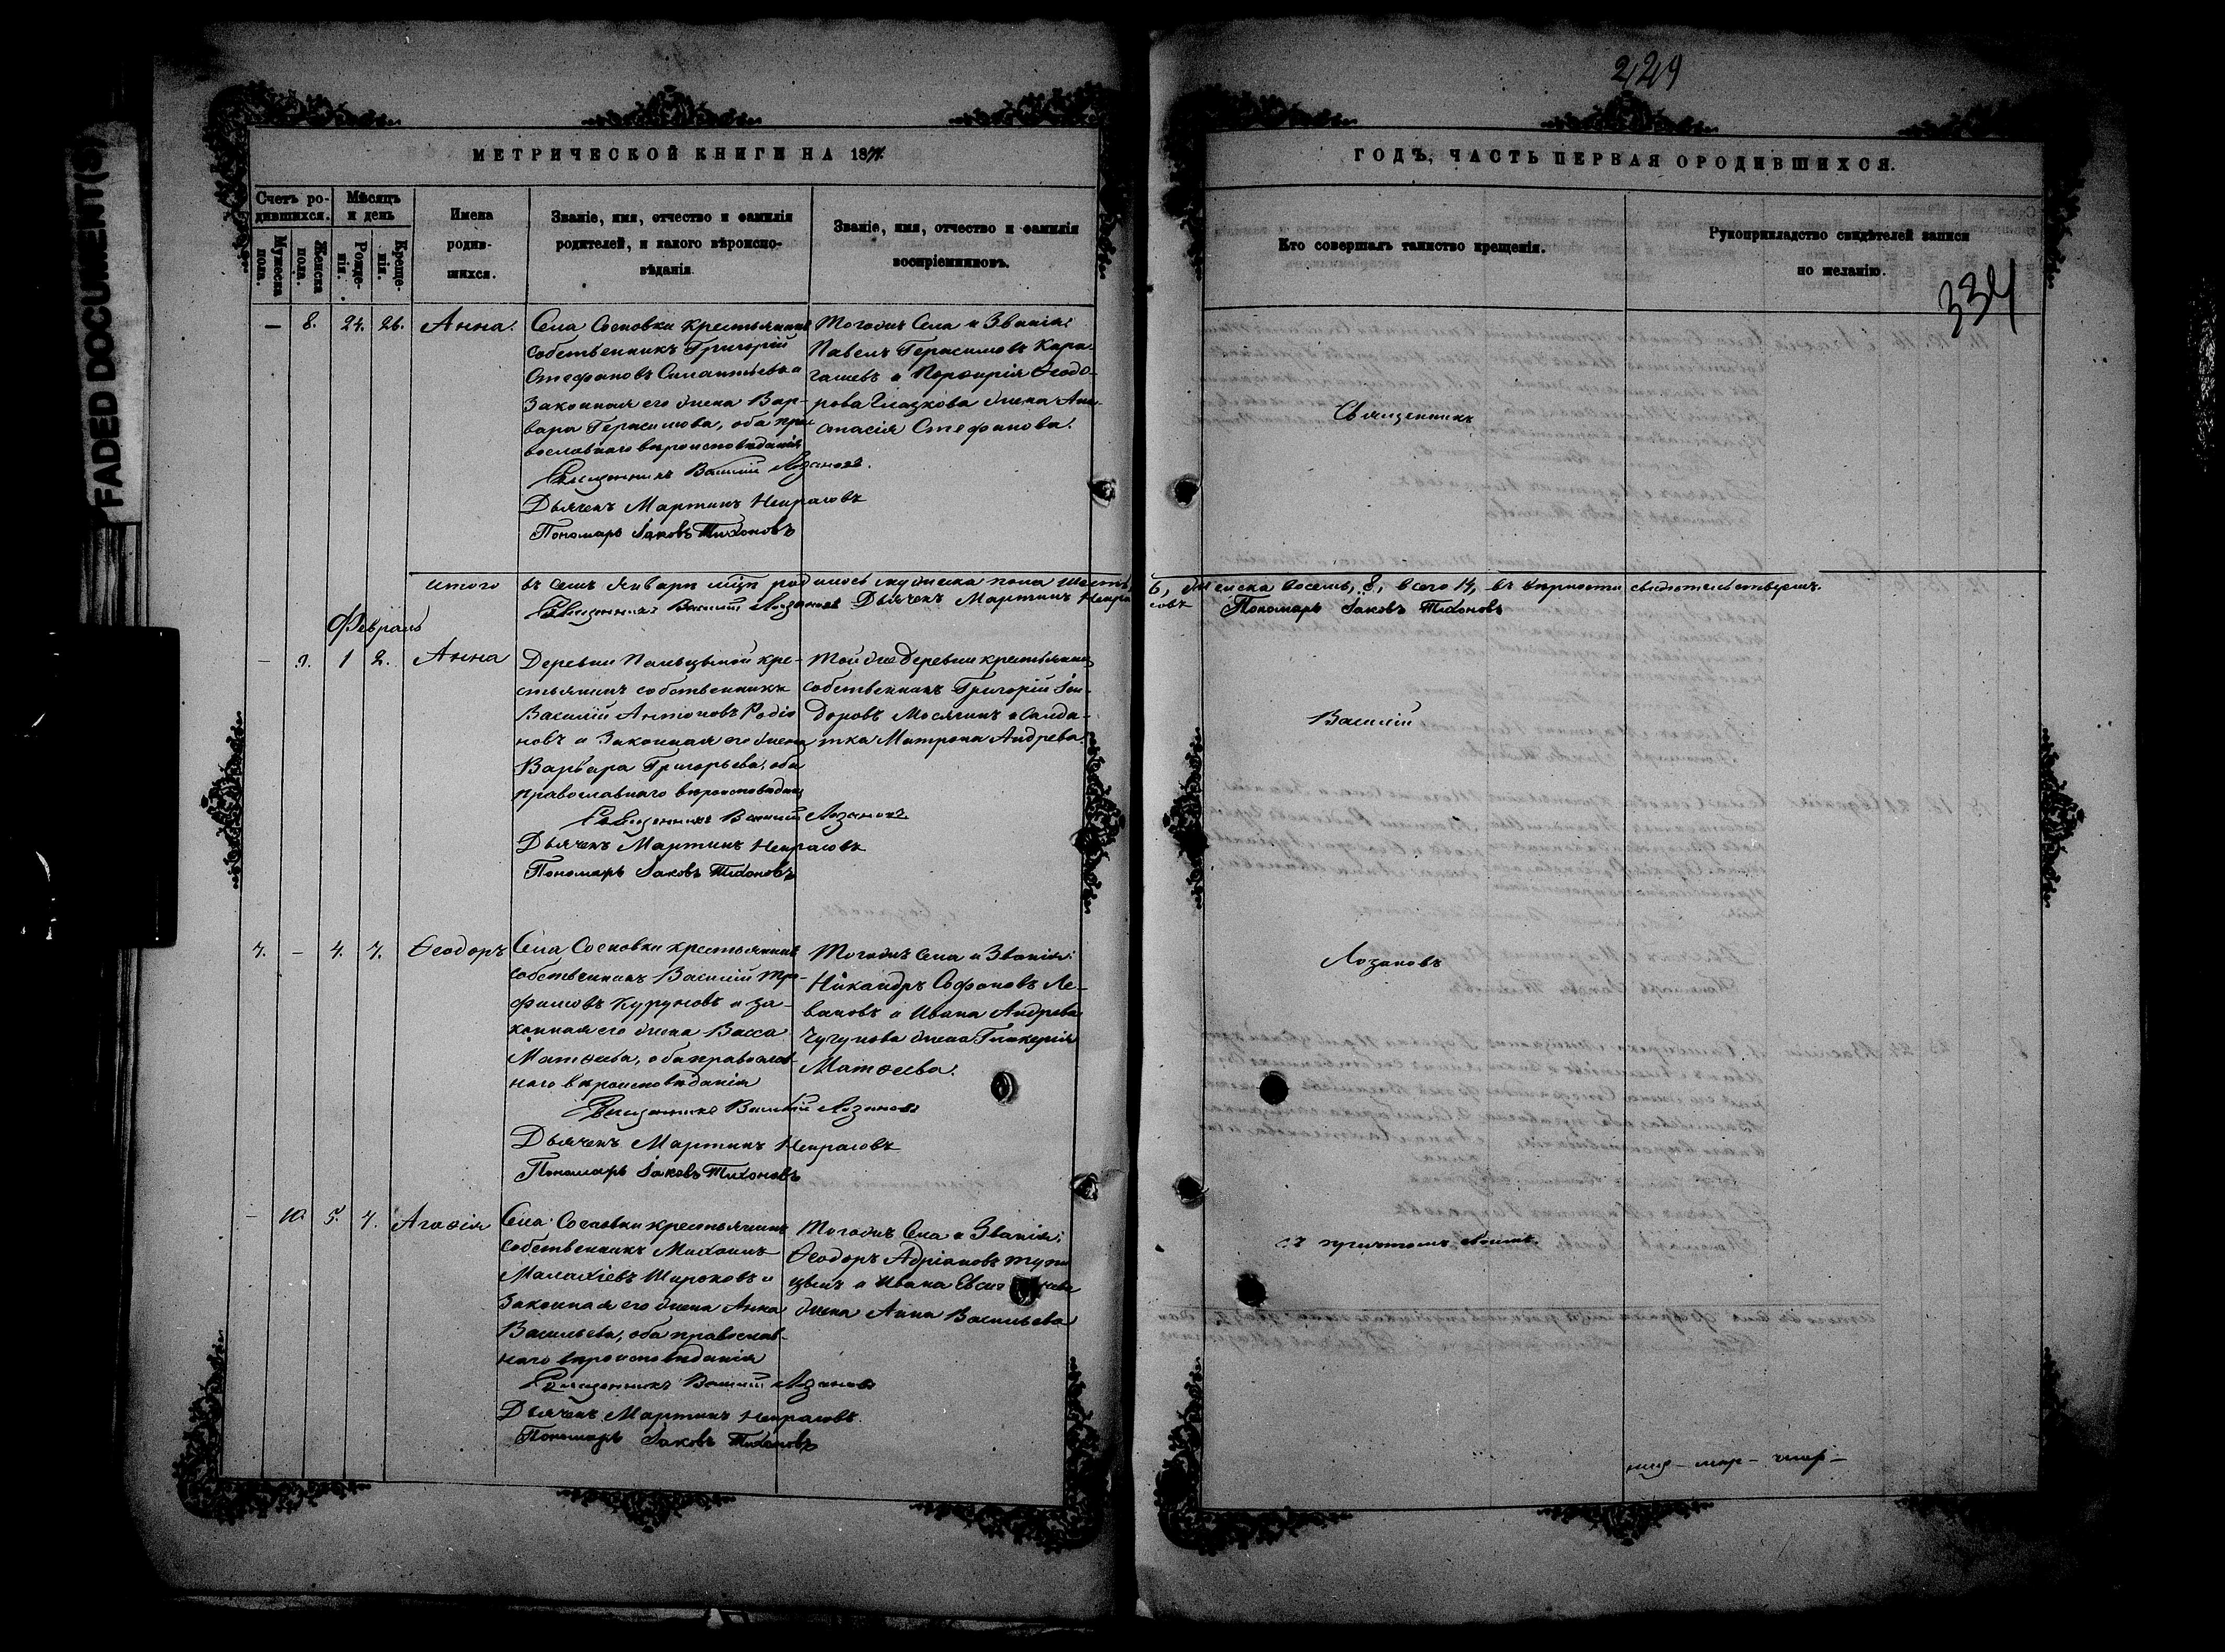 FADED DOCUMENT(S)
229
МЕТРИЧЕСКОЙ КНИГИ НА 1871.
ГОДЪ, ЧАСТЬ ПЕРВАЯ О РОДИВШИХСЯ.
334
Счетъ ро-
дившихся.
Мужеска пола.
Женска пола.
Мѣсяцъ
и день
Рожде-
нія.
Креще-
нія.
Имена
родив-
шихся.
Званіе, имя, отчество и фамилія
родителей, и какого вѣроиспо-
вѣданія.
Званіе, имя, отчество и фамилія
воспріемниковъ.
Кто совершалъ таинство крещенія.
Рукоприкладство свидѣтелей записи
по желанію.
— 8. 24. 26. Анна.
Села Сосновки крестьянинъ
собственникъ Григорій
Стефановъ Силантьевъ и
Законная его жена Вар-
вара Герасимова, оба пра-
вославнаго вѣроисповѣданія
Священникъ Василій Лозановъ.
Дьячекъ Мартинъ Некрасовъ
Пономарь Іаковъ Тихоновъ
Тогожъ Села и Званія:
Павелъ Герасимовъ Кара-
гашевъ и Порфирія Ѳеодо-
рова Глазкова жена Ана-
стасія Стефанова.
Священникъ
Итого въ семъ Январѣ мцѣ родилось мужеска пола шесть,
6, женска восемь, 8, всего 14, въ вѣрности свидѣтельствуемъ.
Священникъ Василій Лозановъ Дьячекъ Мартинъ Некра
совъ Пономарь Іаковъ Тихоновъ
Февраль
— 9. 1 2. Анна
Деревни Пальцыной кре-
стьянинъ собственникъ
Василій Антоновъ Родіо
новъ и Законная его жена
Варвара Григорьева, оба
православнаго вѣроисповѣданія
Священникъ Василій Лозановъ
Дьячекъ Мартинъ Некрасовъ
Пономарь Іаковъ Тихоновъ
Той же деревни крестьянинъ
собственникъ Григорій Іси-
доровъ Мосягинъ и Салда-
тка Матрона Андрева.
Василій
7. — 4. 7. Ѳеодоръ
Села Сосновки крестьянинъ
собственникъ Василій Тро-
фимовъ Куруновъ и за-
конная его жена Васса
Матѳеева, оба православ-
наго вѣроисповѣданія
Священникъ Василій Лозановъ
Дьячекъ Мартинъ Некрасовъ
Пономарь Іаковъ Тихоновъ
Тогожъ Села и Званія:
Никандръ Софоновъ Ле-
вановъ и Ивана Андрева
Чугунова жена Гликерія
Матѳеева.
Лозановъ
— 10. 5. 7. Агаѳія
Села Сосновки крестьянинъ
собственникъ Михаилъ
Малахіевъ Широковъ и
Законная его жена Анна
Васильева, оба православ-
наго вѣроисповѣданія
Священникъ Василій Лозановъ
Дьячекъ Мартинъ Некрасовъ.
Пономарь Іаковъ Тихоновъ
Тогожъ Села и Званія:
Ѳеодоръ Адріановъ
и Ивана
жена Анна Васильева
съ причтомъ своимъ.